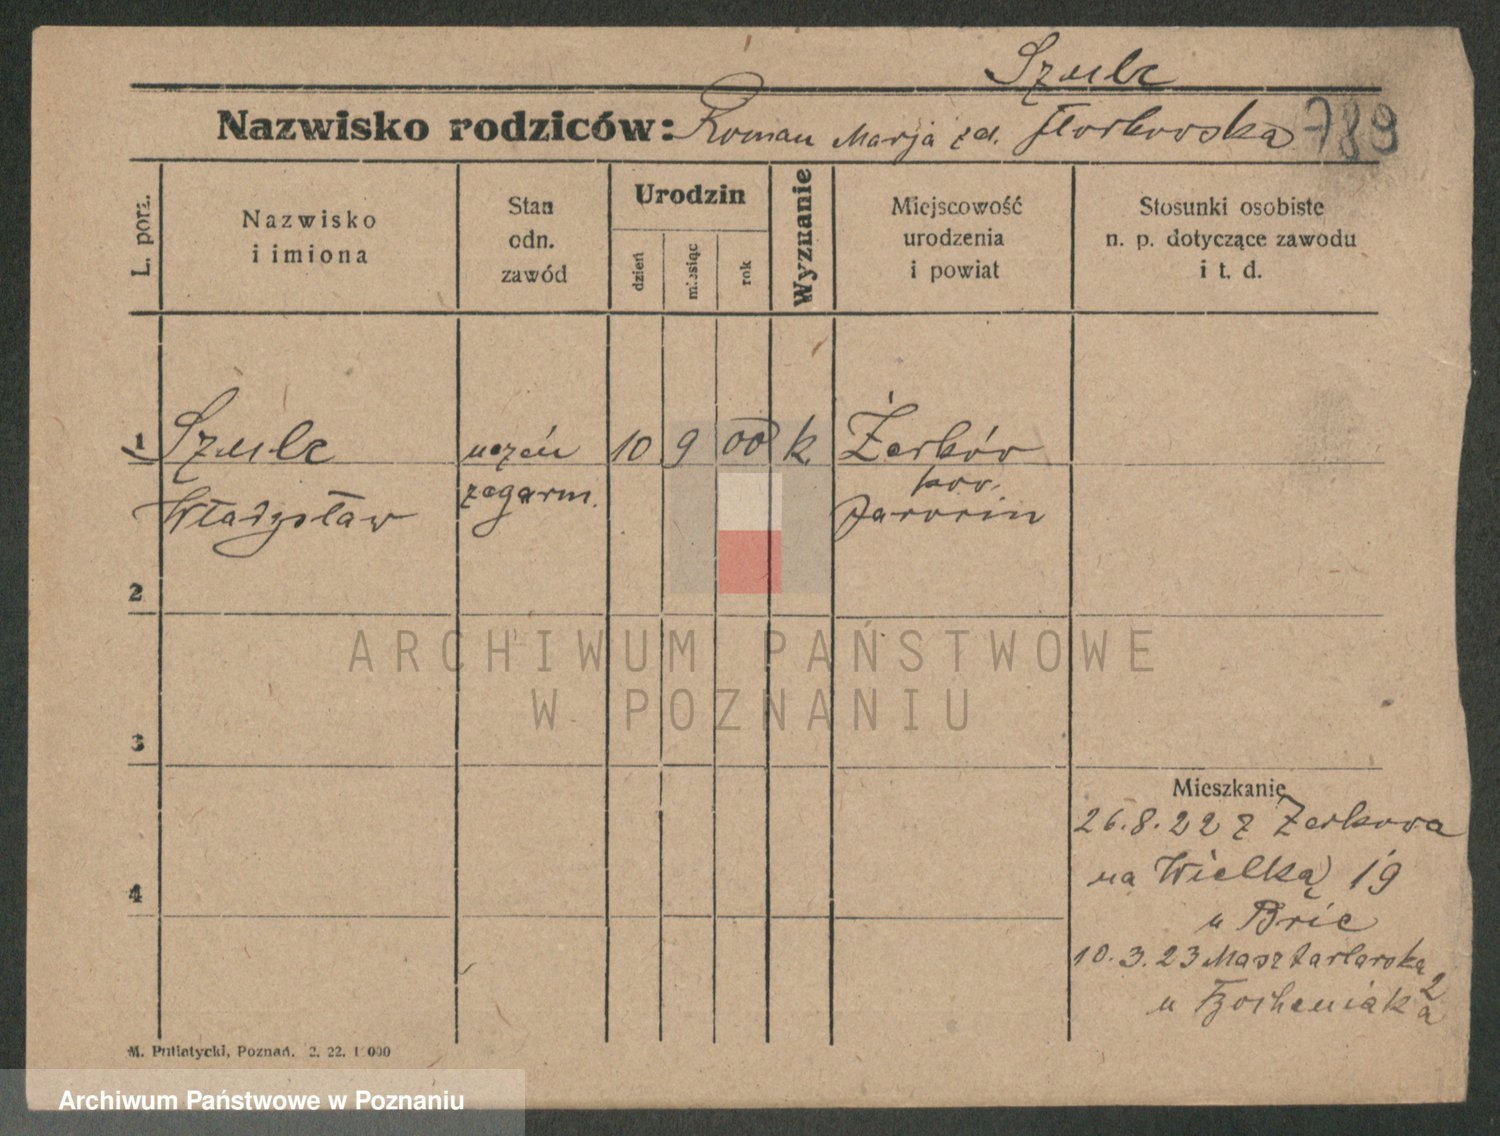 Szulc
Nazwisko rodziców: Roman Marja zd. 789
L. porz.
Nazwisko
i imiona
Stan
odn.
zawód
Urodzin
dzień
miesiąc
rok
Wyznanie
Miejscowość
urodzenia
i powiat
Stosunki osobiste
n. p. dotyczące zawodu
i t. d.
1 Szulc uczeń 10 9 00 k Żerków
zegarm. pow.
Władysław Jarocin
2
3
4
ARCHIWUM PAŃSTWOWE
W POZNANIU
Mieszkanie
26.8.22 z Żerkowa
na Wielką 19
u Bric
10.3.23 Masztalarska 2
u
M. Putiatycki, Poznań. 2. 22. 1000
Archiwum Państwowe w Poznaniu